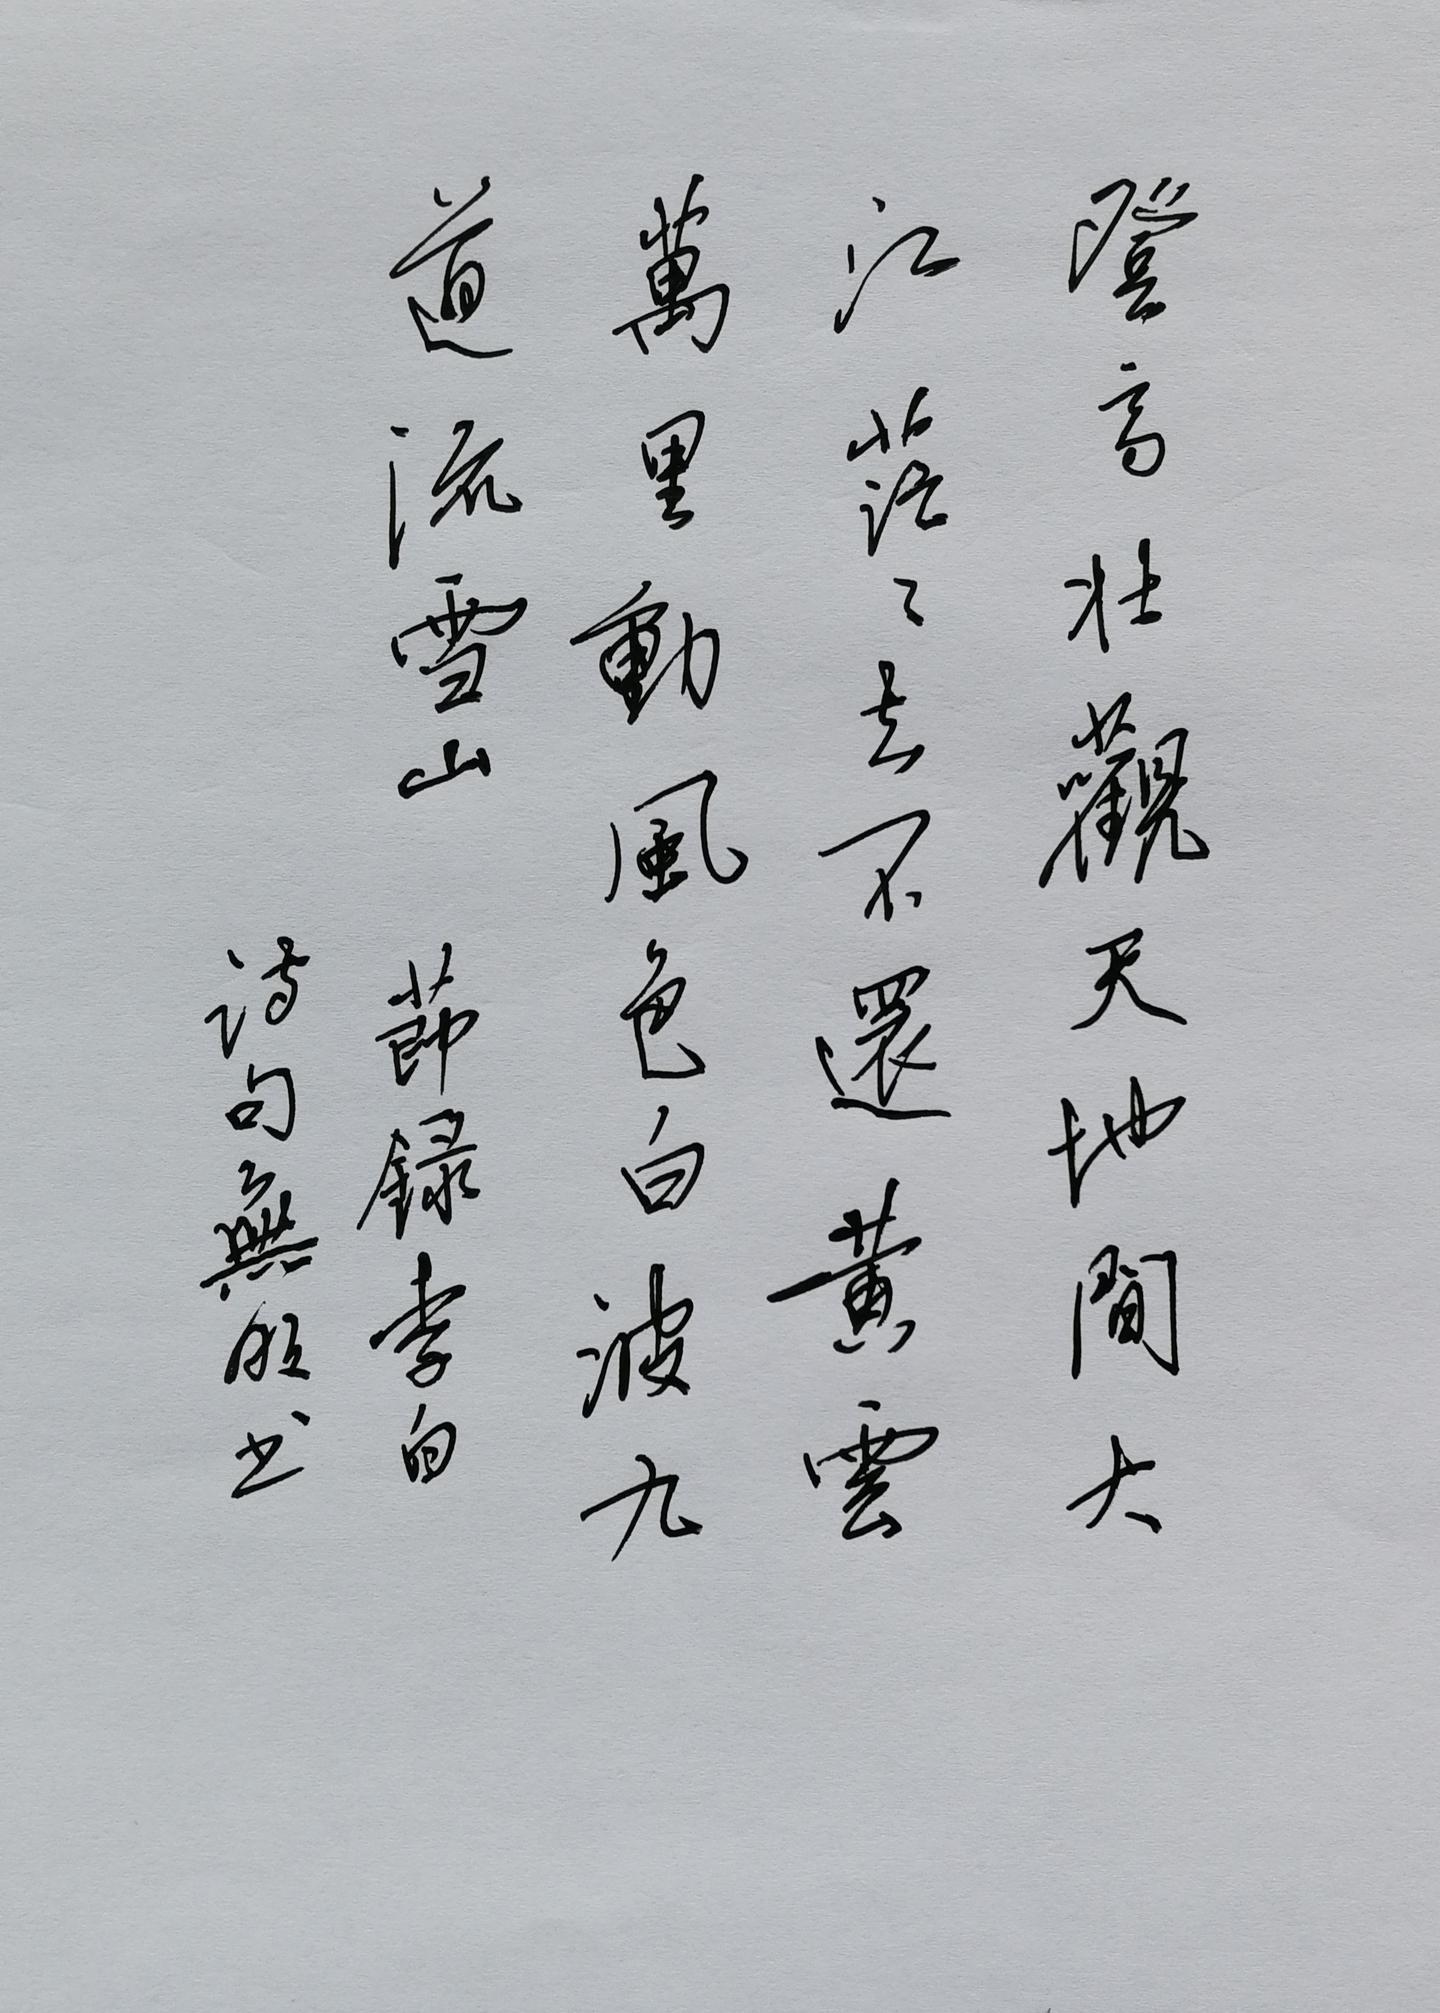 登高壯觀天地間大
江茫々去不還黃雲
萬里動風色白波九
道流雪山 節録李白
诗句無 书